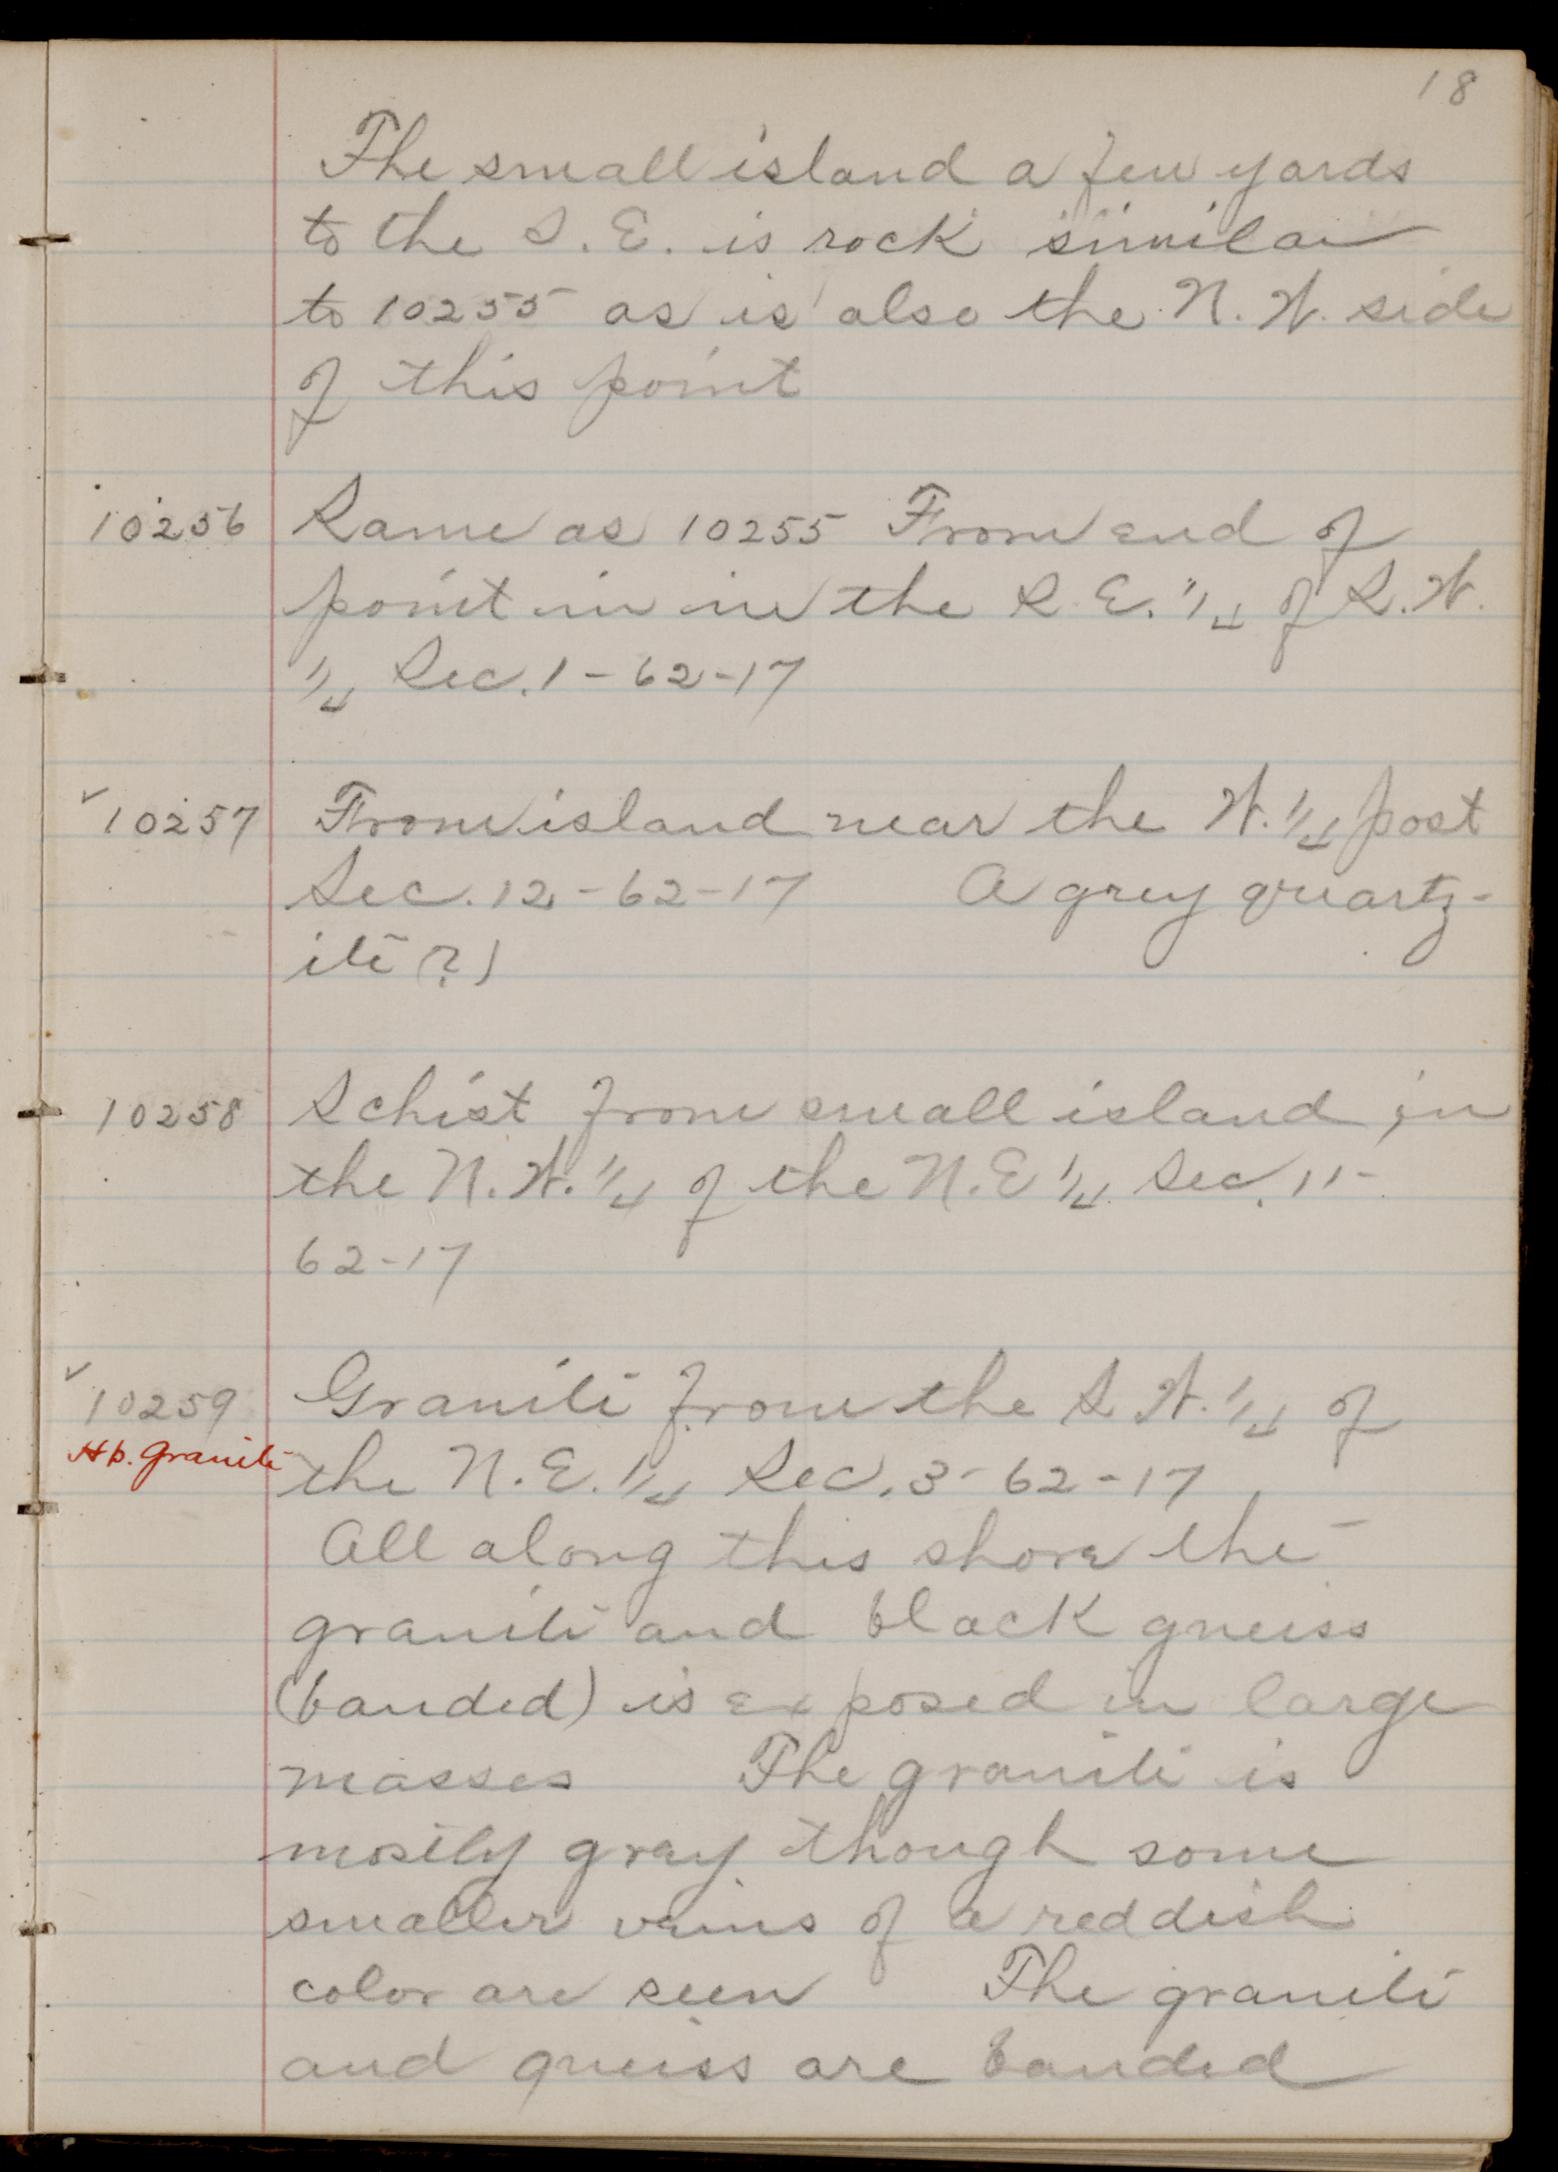 18
The small island a few yards
to the S.E. is rock similar
to 10255 as is also the N.W. side
of this point
10256 Same as 10255 From end of
point in in the S.E. 1/4 of S.W.
1/4 Sec. 1-62-17
✓10257 From island near the W. 1/4 post
Sec. 12-62-17 A grey quartz-
ite (?)
10258 Schist from small island in
the N.W. 1/4 of the N.E 1/4 Sec. 11-
62-17
✓10259 Granite from the S W. 1/4 of
Hb. granite the N.E. 1/4 Sec. 3-62-17
All along this shore the
granite and black gneiss
(banded) is exposed in large
masses The granite is
mostly gray though some
smaller veins of a reddish
color are seen The granite
and gneiss are banded